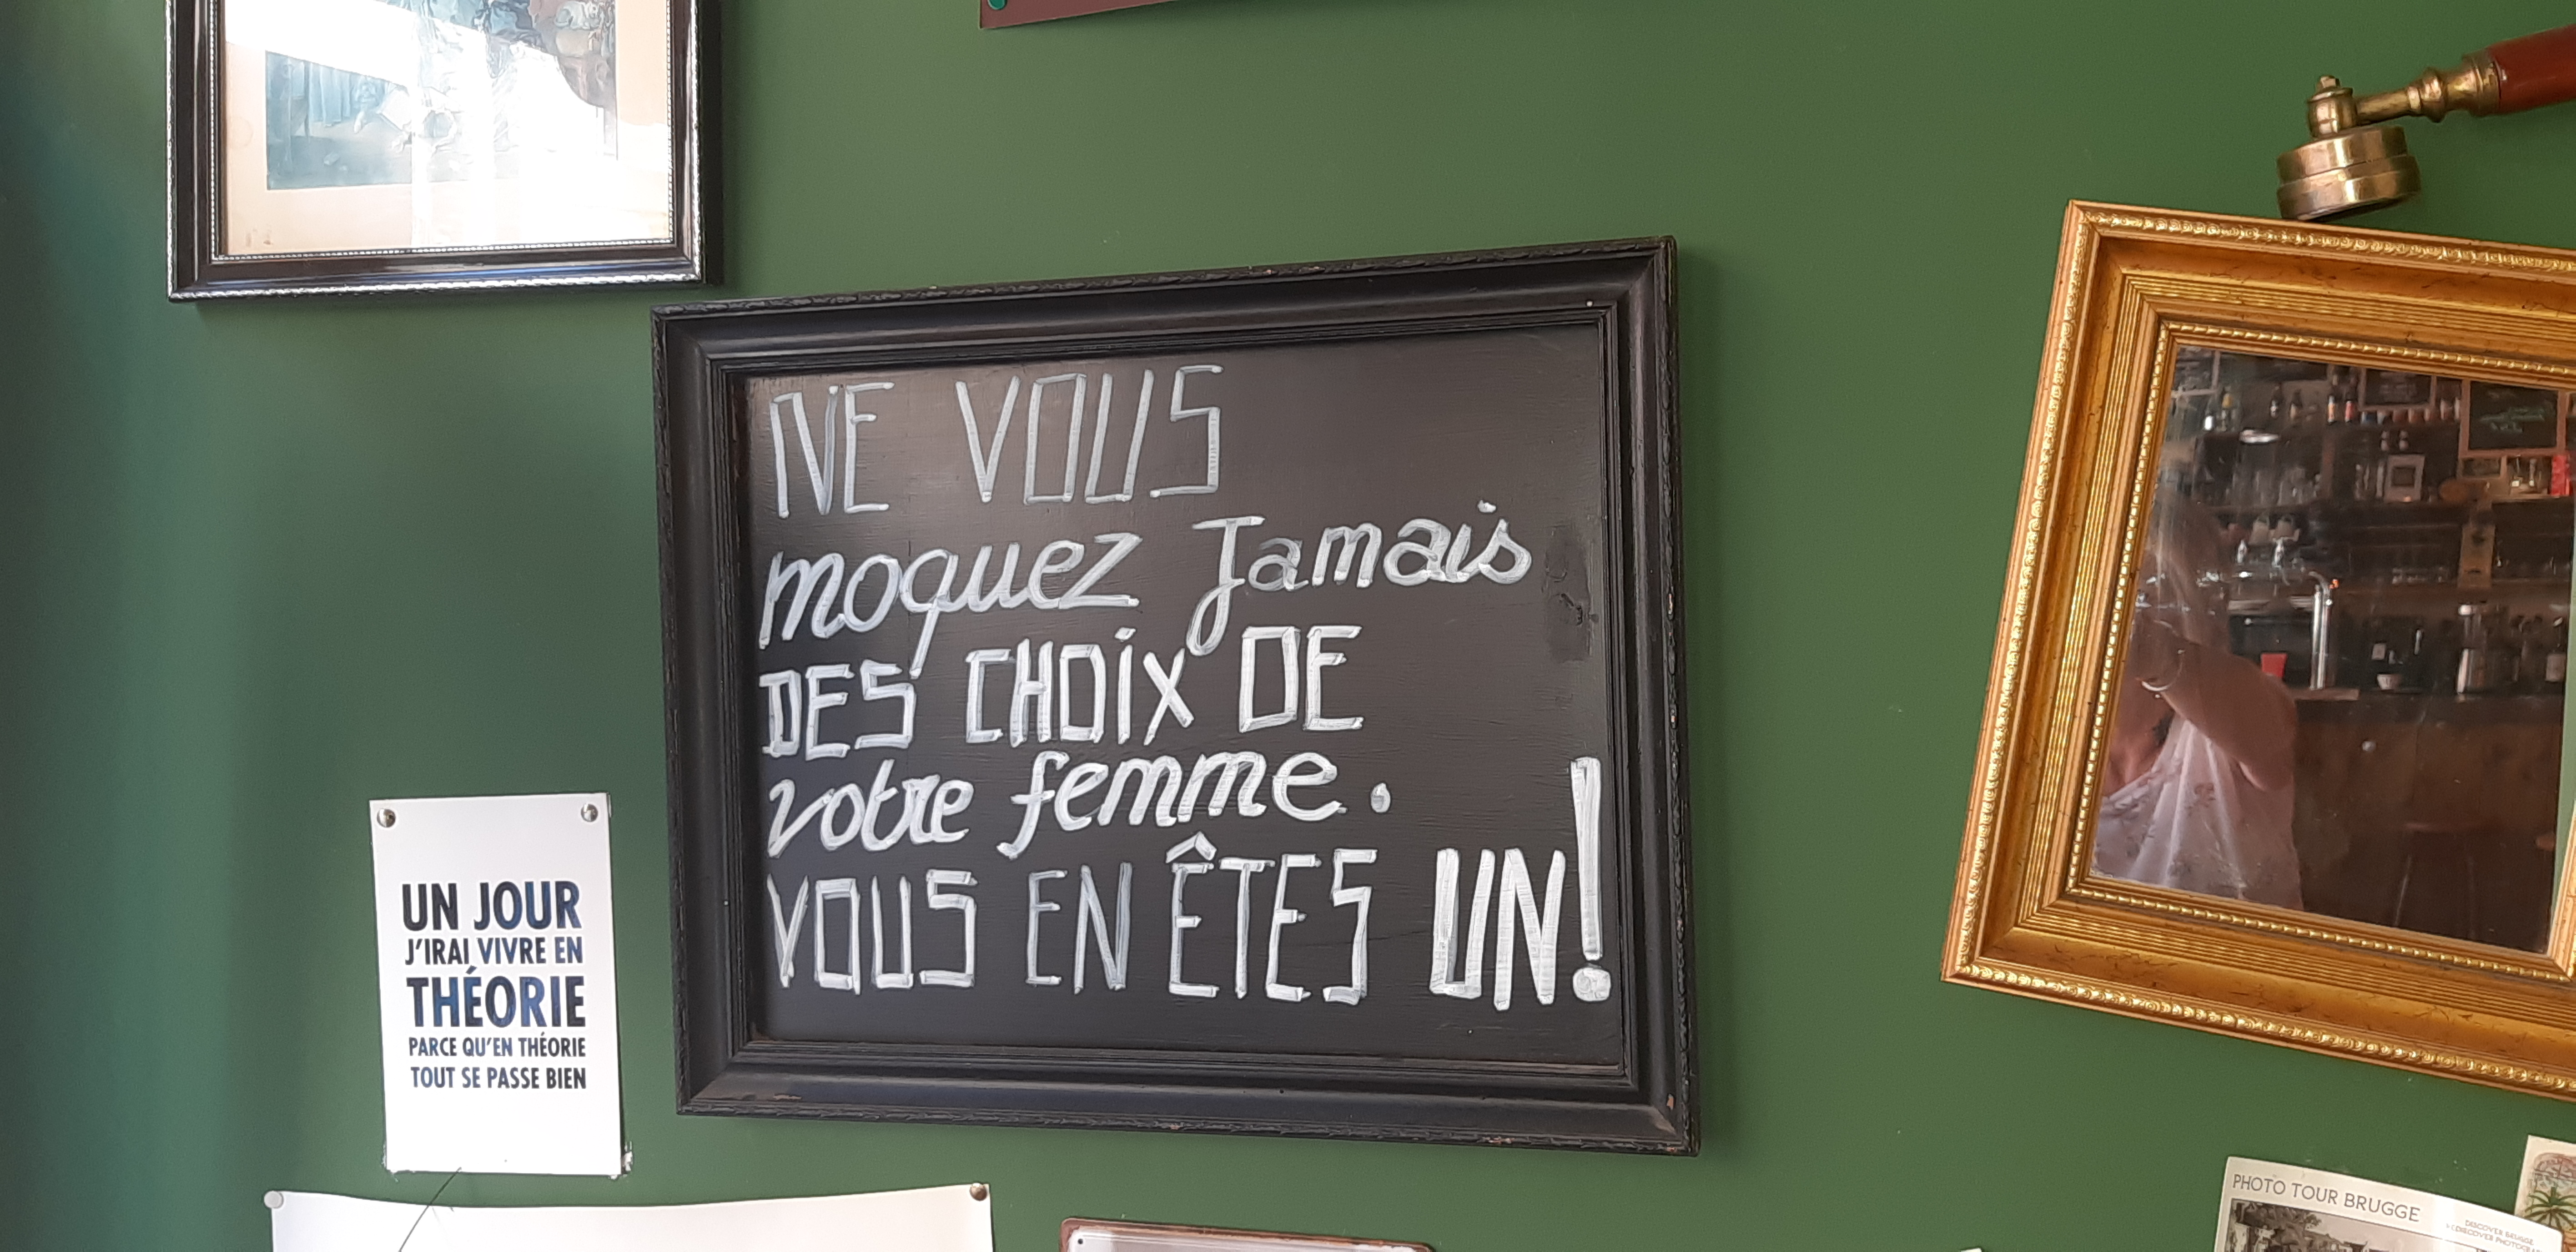 NE VOUS
moquez Jamais
DES CHOix DE
votre femme.
VOUS EN ÊTES UN!
UN JOUR
J'IRAI VIVRE EN
THÉORIE
PARCE QU'EN THÉORIE
TOUT SE PASSE BIEN
PHOTO TOUR BRUGGE
DISCOVER BRUGGE